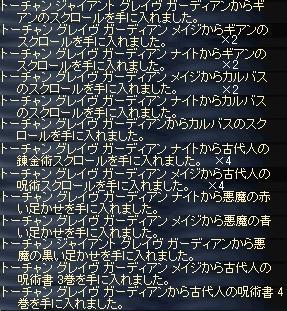 トーチャンジャイアント グレイヴ ガーディアンからギ
アンのスクロールを手に入れました。
トーチャン グレイヴ ガーディアン メイジからギアンの
スクロールを手に入れました。 ×2
トーチャン グレイヴ ガーディアン ナイトからギアンの
スクロールを手に入れました。 ×2
トーチャン グレイヴ ガーディアン メイジからカルバス
のスクロールを手に入れました。 ×2
トーチャン グレイヴ ガーディアン ナイトからカルバス
のスクロールを手に入れました。
トーチャン グレイヴ ガーディアンからカルバスのスク
ロールを手に入れました。
トーチャン グレイヴ ガーディアン ナイトから古代人の
錬金術スクロールを手に入れました。 ×4
トーチャン グレイヴ ガーディアン メイジから古代人の
呪術スクロールを手に入れました。 ×4
トーチャン グレイヴ ガーディアン ナイトから悪魔の赤
い足かせを手に入れました。
トーチャン グレイヴ ガーディアン メイジから悪魔の青
い足かせを手に入れました。
トーチャン ジャイアント グレイヴ ガーディアンから悪
魔の黒い足かせを手に入れました。
トーチャン グレイヴ ガーディアン メイジから古代人の
呪術書 3巻を手に入れました。
トーチャン グレイヴ ガーディアンから古代人の呪術書 4
巻を手に入れました。